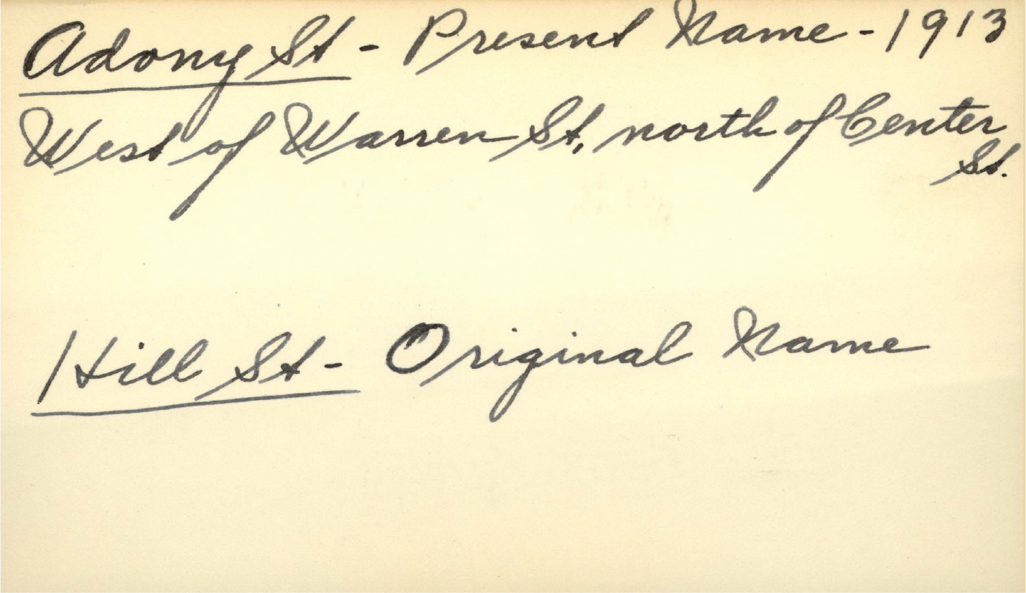 Adony St - Present Name - 1913
West of Warren St, north of Center
St.
Hill St - Original Name